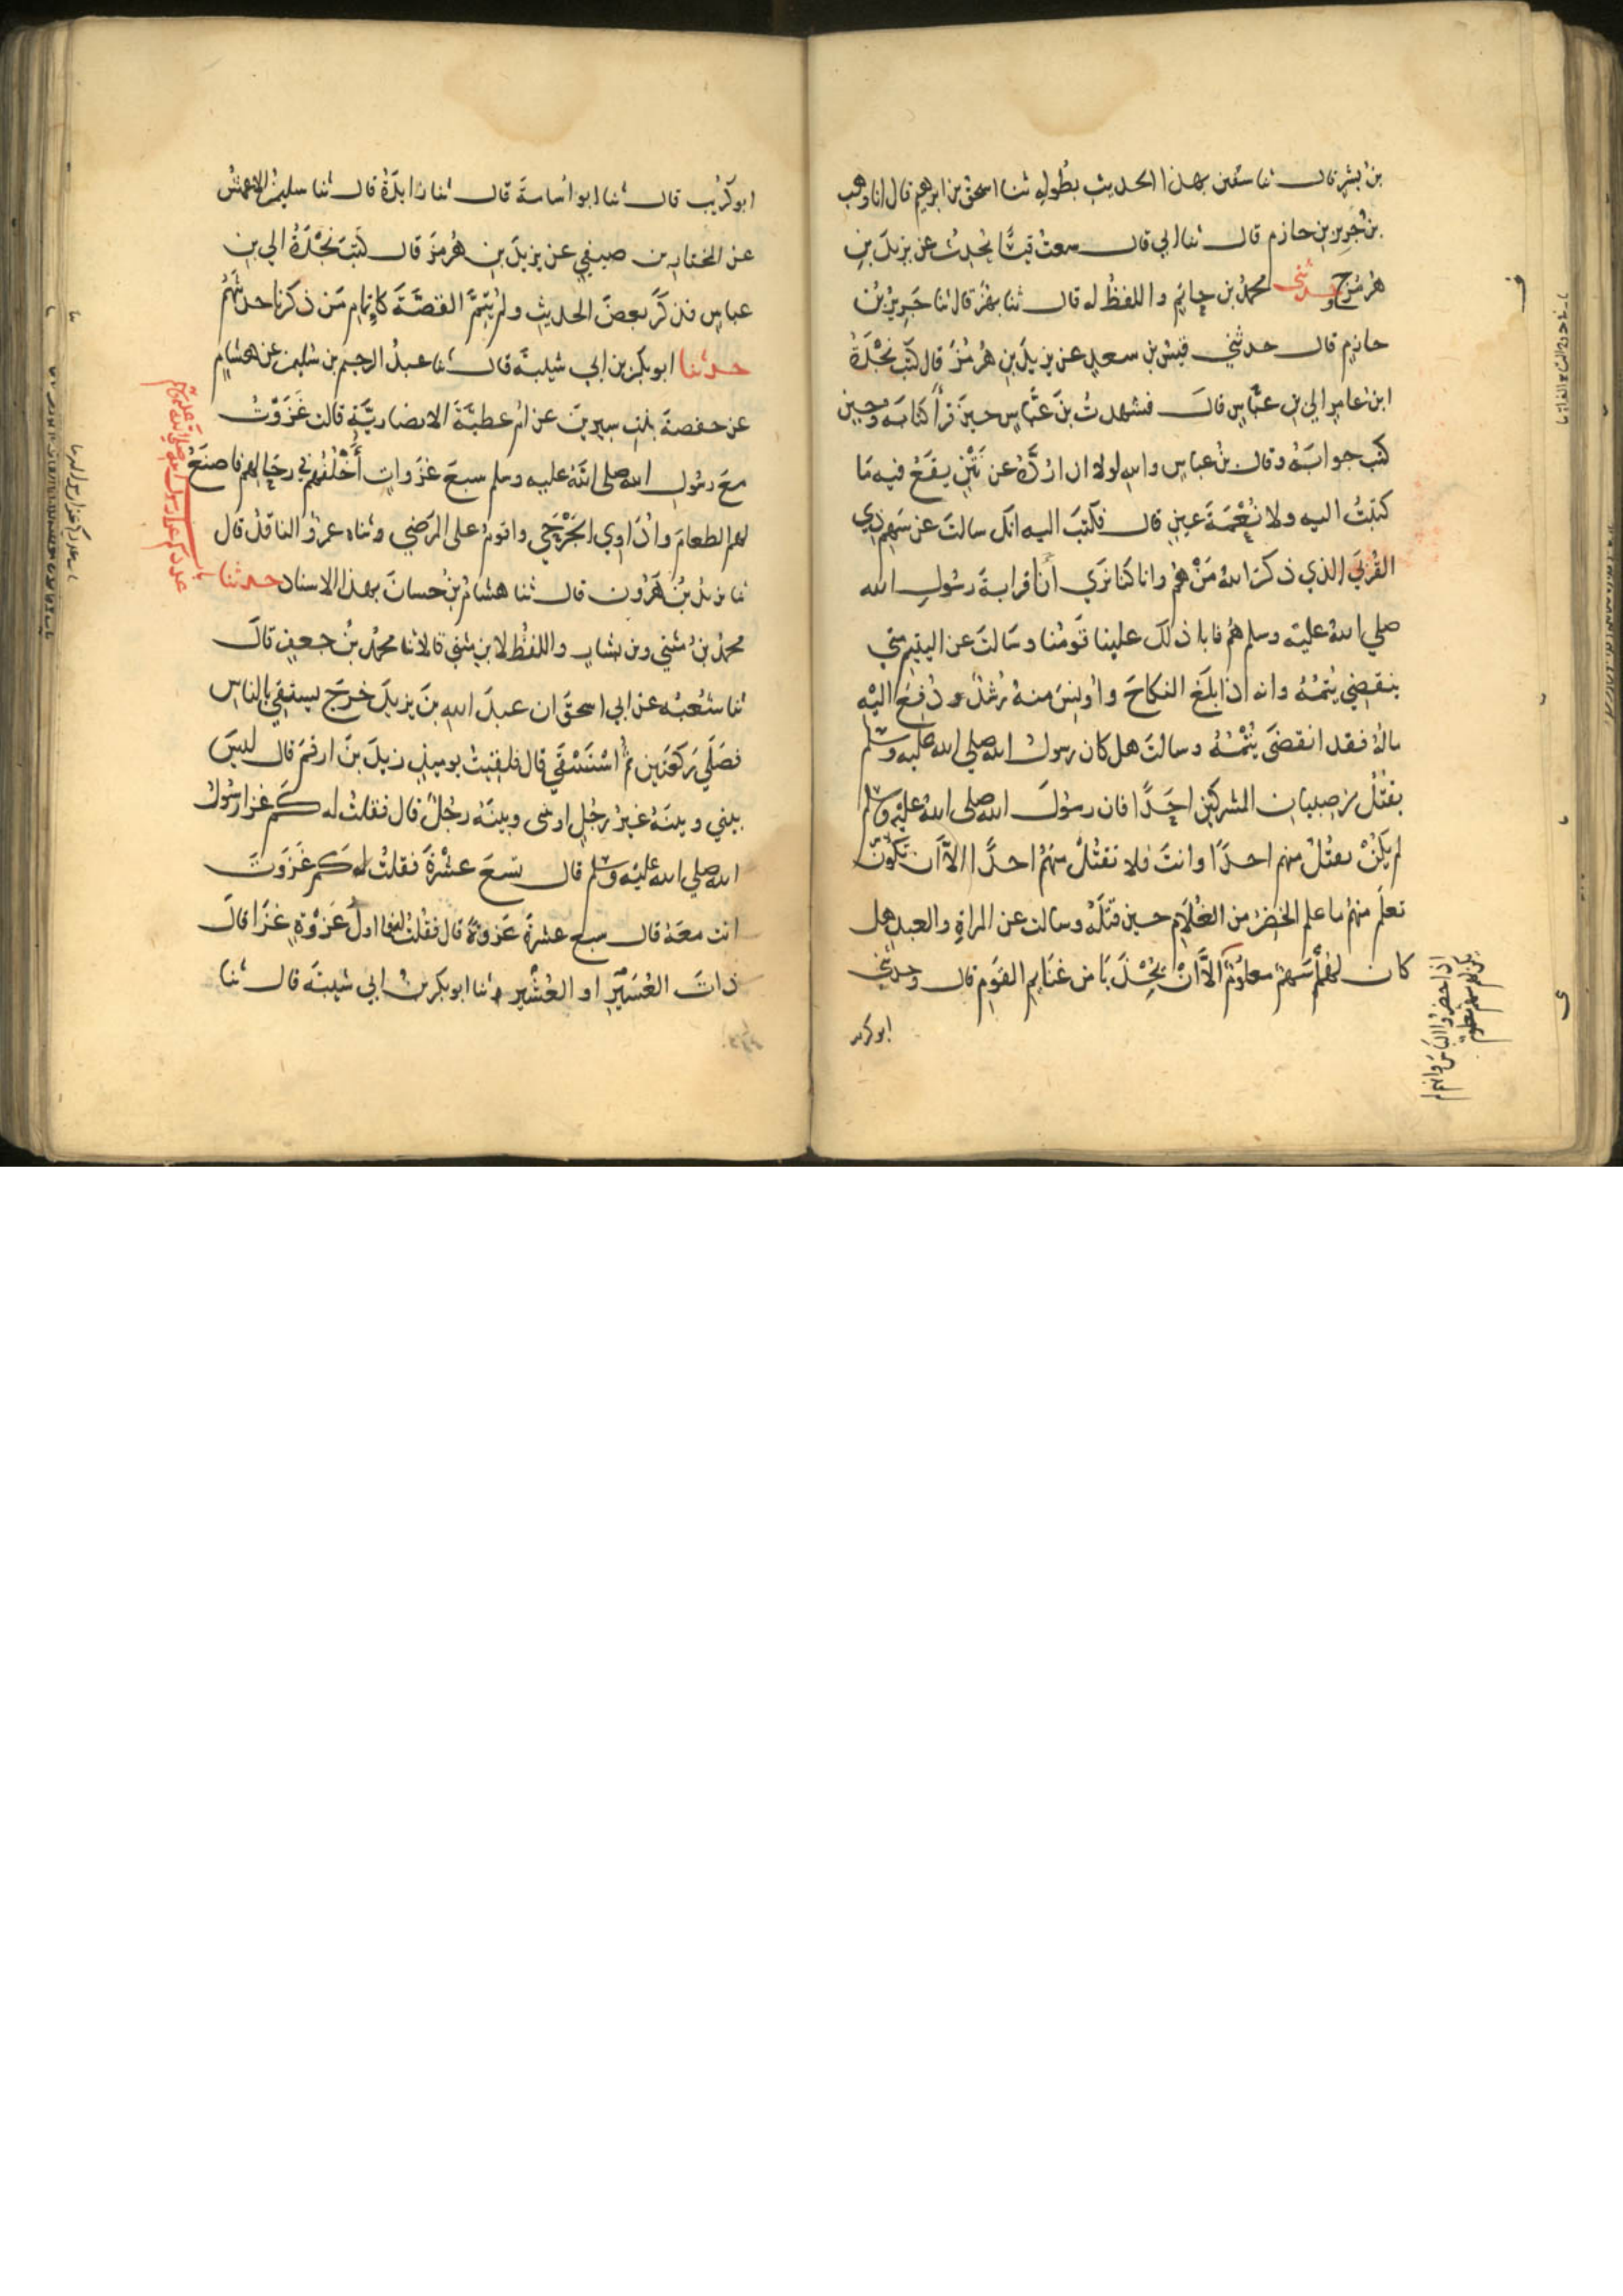 بن بشر قال ثنا سفين بهذا الحديث بطوله ثنا اسحق بن ابرهيم قال انا وهب
بن جرير بن حازم قال ثنا ابي قال سمعت قيسًا يحدث عن يزيد بن
هرمز ح وحدثني محمد بن حاتم واللفظ له قال ثنا بهز قال ثنا جرير بن
حازم قال حدثني قيس بن سعد عن يزيد بن هرمز قال كتب نجدة
ابن عامر الي ابن عباس قال فشهدت بن عباس حين قرأ كتابه وحين
كتب جوابه وقال بن عباس والله لولا ان اردّه عن نتن يقع فيه ما
كتبت اليه ولا نعمة عين قال فكتب اليه انك سالت عن سهم ذي
القربي الذي ذكر الله من هم وانا كنا نري أن قرابة رسول الله
صلي الله عليه وسلم هم فابا ذلك علينا قومنا وسالت عن اليتيم متي
ينقضي يتمه وانه اذا بلغ النكاح واونس منه رشد ودفع اليه
ماله فقد انقضى يتمه وسالت هل كان رسول الله صلي الله عليه وسلم
يقتل من صبيان المشركين احدًا فان رسول الله صلى الله عليه وسلم
لم يكن يقتل منهم احدًا وانت فلا تقتل منهم احدًا الا أن تكون
تعلم منهم ما علم الخضر من الغلام حين قتله وسالت عن المراة والعبد هل
كان لهما سهم معلوم الا أن يحذيا من غنايم القوم قال وحدثني
اذا حضروا البأس وانهم لم
يكن لهم سهم معلوم
ابو كريب
ابو كريب قال ثنا ابو اسامة قال ثنا زايدة قال ثنا سليمن الاعمش
عن المختار بن صيفي عن يزيد بن هرمز قال كتب نجدة الي بن
عباس فذكر بعض الحديث ولم يتم القصة كاتمام من ذكرنا حديثهم
حدثنا ابو بكر بن ابي شيبة قال ثنا عبد الرحيم بن سليمن عن هشام
عن حفصة بنت سيرين عن ام عطية الانصارية قالت غزوت
مع رسول الله صلى الله عليه وسلم سبع غزوات أخلفهم في رحالهم فاصنع
لهم الطعام واداوي الجرحي واقوم على المرضي وثناه عمرو الناقد قال
ثنا يزيد بن هرون قال ثنا هشام بن حسان بهذا الاسناد حدثنا
باب عدد كم غزا رسول الله صلى الله عليه وسلم
محمد بن مثني وبن بشار واللفظ لابن مثني قالا ثنا محمد بن جعفر قال
ثنا شعبه عن ابي اسحق ان عبد الله بن يزيد خرج يستسقي بالناس
فصلي ركعتين ثم استسقي قال فلقيت يوميذ زيد بن ارقم قال ليس
بيني وبينه غير رجل او بيني وبينه رجل قال فقلت له كم غزا رسول
الله صلي الله عليه وسلم قال تسع عشرة فقلت له كم غزوت
انت معه قال سبع عشرة غزوة قال فقلت فما اول غزوة غزا قال
ذات العسير او العشير وثنا ابو بكر بن ابي شيبة قال ثنا